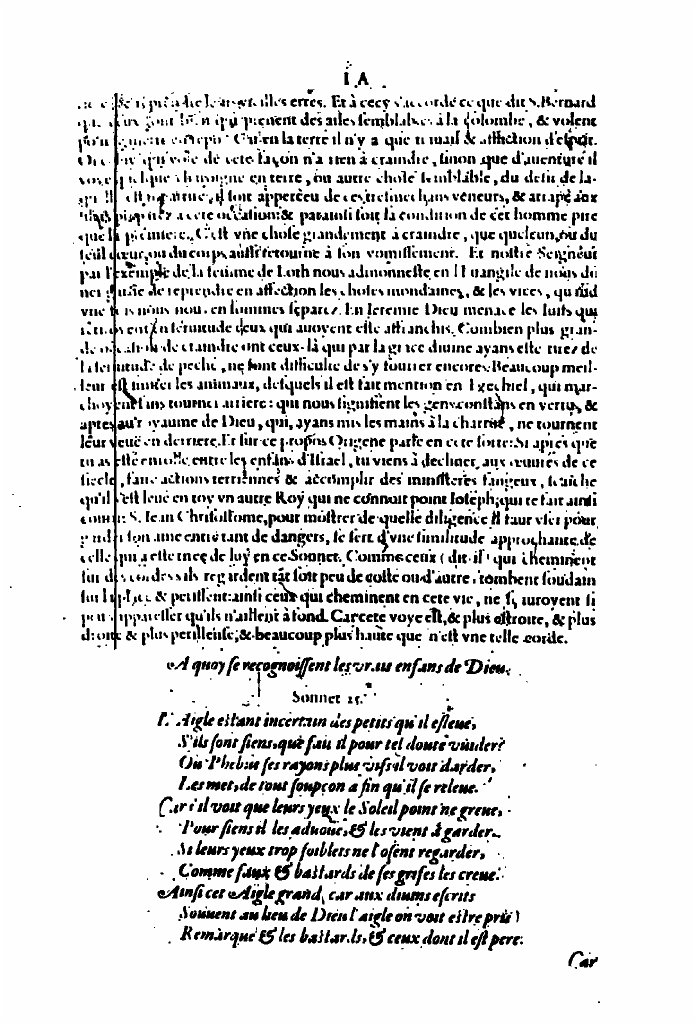 I A
Et à cecy s'accorde ce que dit S. Bernard
qui prenent des ailes semblables à la colombe, & volent
en la terre il n'y a que trauail & affliction d'esprit.
de cete façon n'a rien à craindre, sinon que d'auenture il
en terre, ou autre chose semblable, du desir de la-
il soit apperceu de ces tresmechans veneurs, & attrapé aux
a cete occasion: & par ainsi soit la condition de cet homme pire
que la premiere. C'est vne chose grandement à craindre, que quelcun, ou du
seul cœur, ou du corps aussi retourne à son vomissement. Et nostre Seigneur
par l'exemple de la femme de Loth nous admonneste en l'Euangile de nous
de reprendre en affection les choses mondaines, & les vices, quand
vne fois nous nous en sommes separez. En Ieremie Dieu menace les Iuifs qui
en seruitude ceux qui auoyent esté affranchis. Combien plus gran-
de craindre ont ceux-là qui par la grace diuine ayans esté tirez de
la seruitude de peché, ne font difficulté de s'y fourrer encores. Beaucoup meil-
leur est imiter les animaux, desquels il est fait mention en Ezechiel, qui mar-
choyent sans tourner arriere: qui nous signifient les gens constans en vertu, &
aptes au royaume de Dieu, qui, ayans mis les mains à la charrue, ne tournent
leur veuë en derriere. Et sur ce propos Origene parle en cete sorte: Si apres que
tu as esté entre les enfans d'Israel, tu viens à decliner aux œuures de ce
siecle, faire actions terriennes & accomplir des ministeres fangeux, sache
qu'il s'est leué en toy vn autre Roy qui ne connoit point Ioseph, qui te fait ainsi
S. Iean Chrisostome, pour mostrer de quelle diligence il faut vser pour
son ame entre tant de dangers, se sert d'vne similitude approchante de
celle qui a esté tiree de luy en ce Sonnet. Comme ceux (dit-il) qui cheminent
sur des cordes s'ils regardent tāt soit peu de costé ou d'autre, tombent soudain
& perissent: ainsi ceux qui cheminent en cete vie, ne
qu'ils n'aillent à fond. Car cete voye est, & plus estroite, & plus
droite & plus perilleuse, & beaucoup plus haute que n'est vne telle corde.
A quoy se recognoissent les vrais enfans de Dieu.
Sonnet 25.
L'Aigle estant incertain des petits qu'il esleue,
S'ils sont siens, que fait il pour tel doute vuider?
Où Phebus ses rayons plus vifs il voit darder,
Les met, de tout soupçon a fin qu'il se releue.
Car s'il voit que leurs yeux le Soleil point ne greue,
Pour siens il les aduoue, & les vient à garder.
Si leurs yeux trop foiblets ne l'osent regarder,
Comme faux & bastards de ses grifes les creue.
Ainsi cet Aigle grand, car aux diuins escrits
Souuent au lieu de Dieu l'aigle on voit estre pris)
Remarque & les bastards, & ceux dont il est pere.
Car